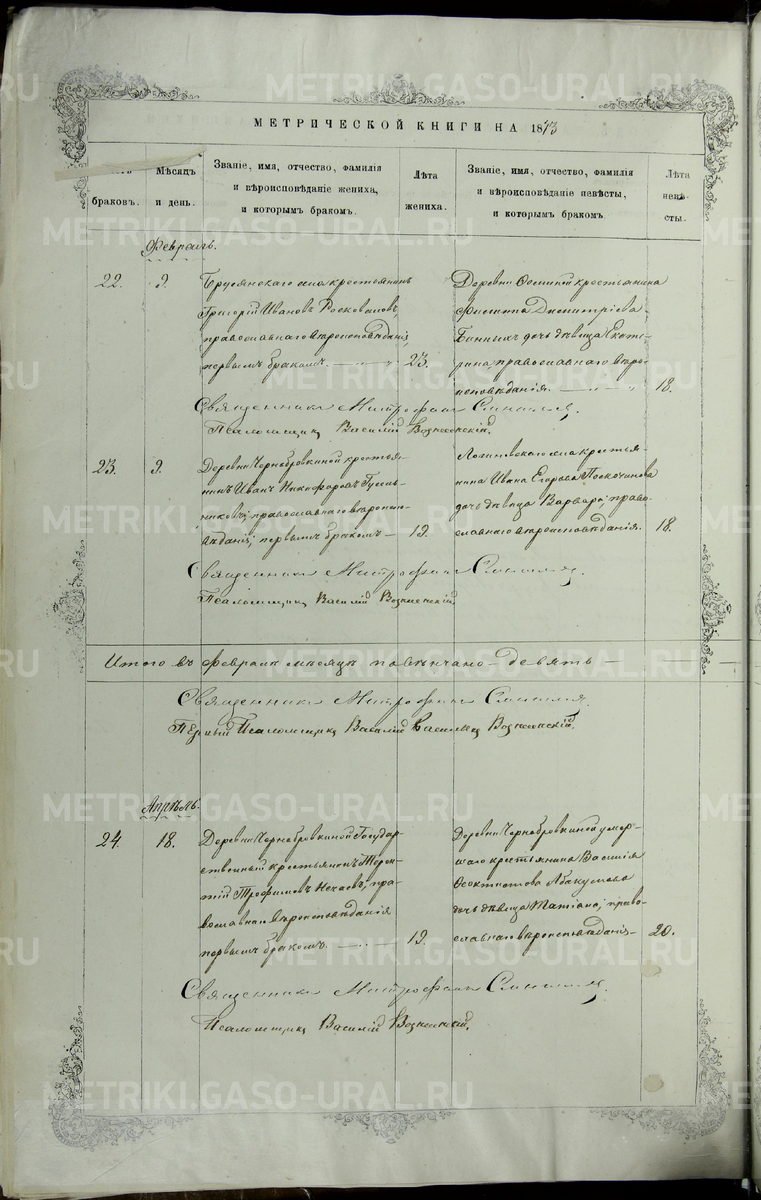 МЕТРИЧЕСКОЙ КНИГИ НА 1873
браковъ.
Мѣсяцъ
и день.
Званіе, имя, отчество, фамилія
и вѣроисповѣданіе жениха,
и которымъ бракомъ.
Лѣта
жениха.
Званіе, имя, отчество, фамилія
и вѣроисповѣданіе невѣсты,
и которымъ бракомъ
Лѣта
невѣ-
сты.
Февраль.
22.
9.
Бруснянскаго села крестьянинъ
Григорій Ивановъ
православнаго вѣроисповѣданія
первымъ бракомъ.
23.
Деревни крестьянина
Филиппа Димитріева
Банныхъ дочь дѣвица Екате-
рина православнаго вѣро-
исповѣданія.
18.
Священникъ Митрофанъ
Псаломщикъ Василій Вознесенскій.
23.
9.
Деревни Чернобровкиной крестья-
нинъ Иванъ Никифоровъ
православнаго вѣроиспо-
вѣданія; первымъ бракомъ
19.
Логиновскаго села крестья-
нина Ивана Егорова
дочь дѣвица Варвара, право-
славнаго вѣроисповѣданія.
18.
Священникъ Митрофанъ
Псаломщикъ Василій Вознесенскій
Итого въ февралѣ мѣсяцѣ повѣнчано девять
Священникъ Митрофанъ
Псаломщикъ Василій Вознесенскій
Апрѣль.
24.
18.
Деревни Чернобровкиной Государ-
ственный крестьянинъ Терен-
тій Трофимовъ Нечаевъ, пра-
вославнаго вѣроисповѣданія
первымъ бракомъ
19.
Деревни Чернобровкиной умер-
шаго крестьянина Василія
Ѳеоктистова Абакумова
дочь дѣвица Татіана, право-
славнаго вѣроисповѣданія
20.
Священникъ Митрофанъ
Псаломщикъ Василій Вознесенскій.
METRIKI.GASO-URAL.RU